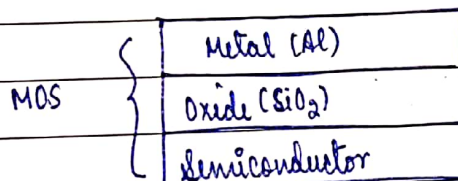 Metal (Al)
MOS
Oxide (SiO₂)
Semiconductor